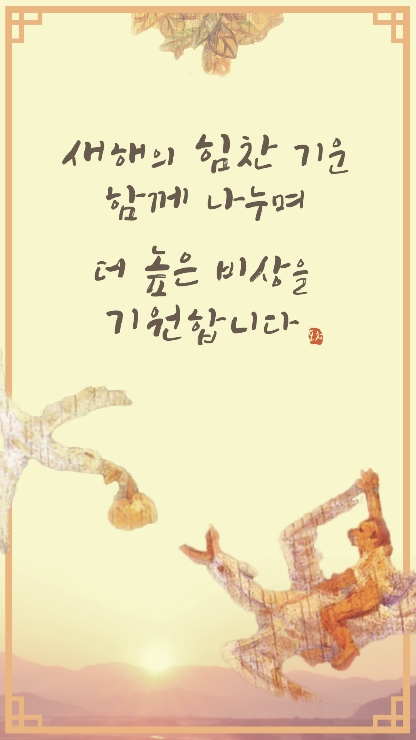 새해의 힘찬 기운
함께 나누며
더 높은 비상을
기원합니다